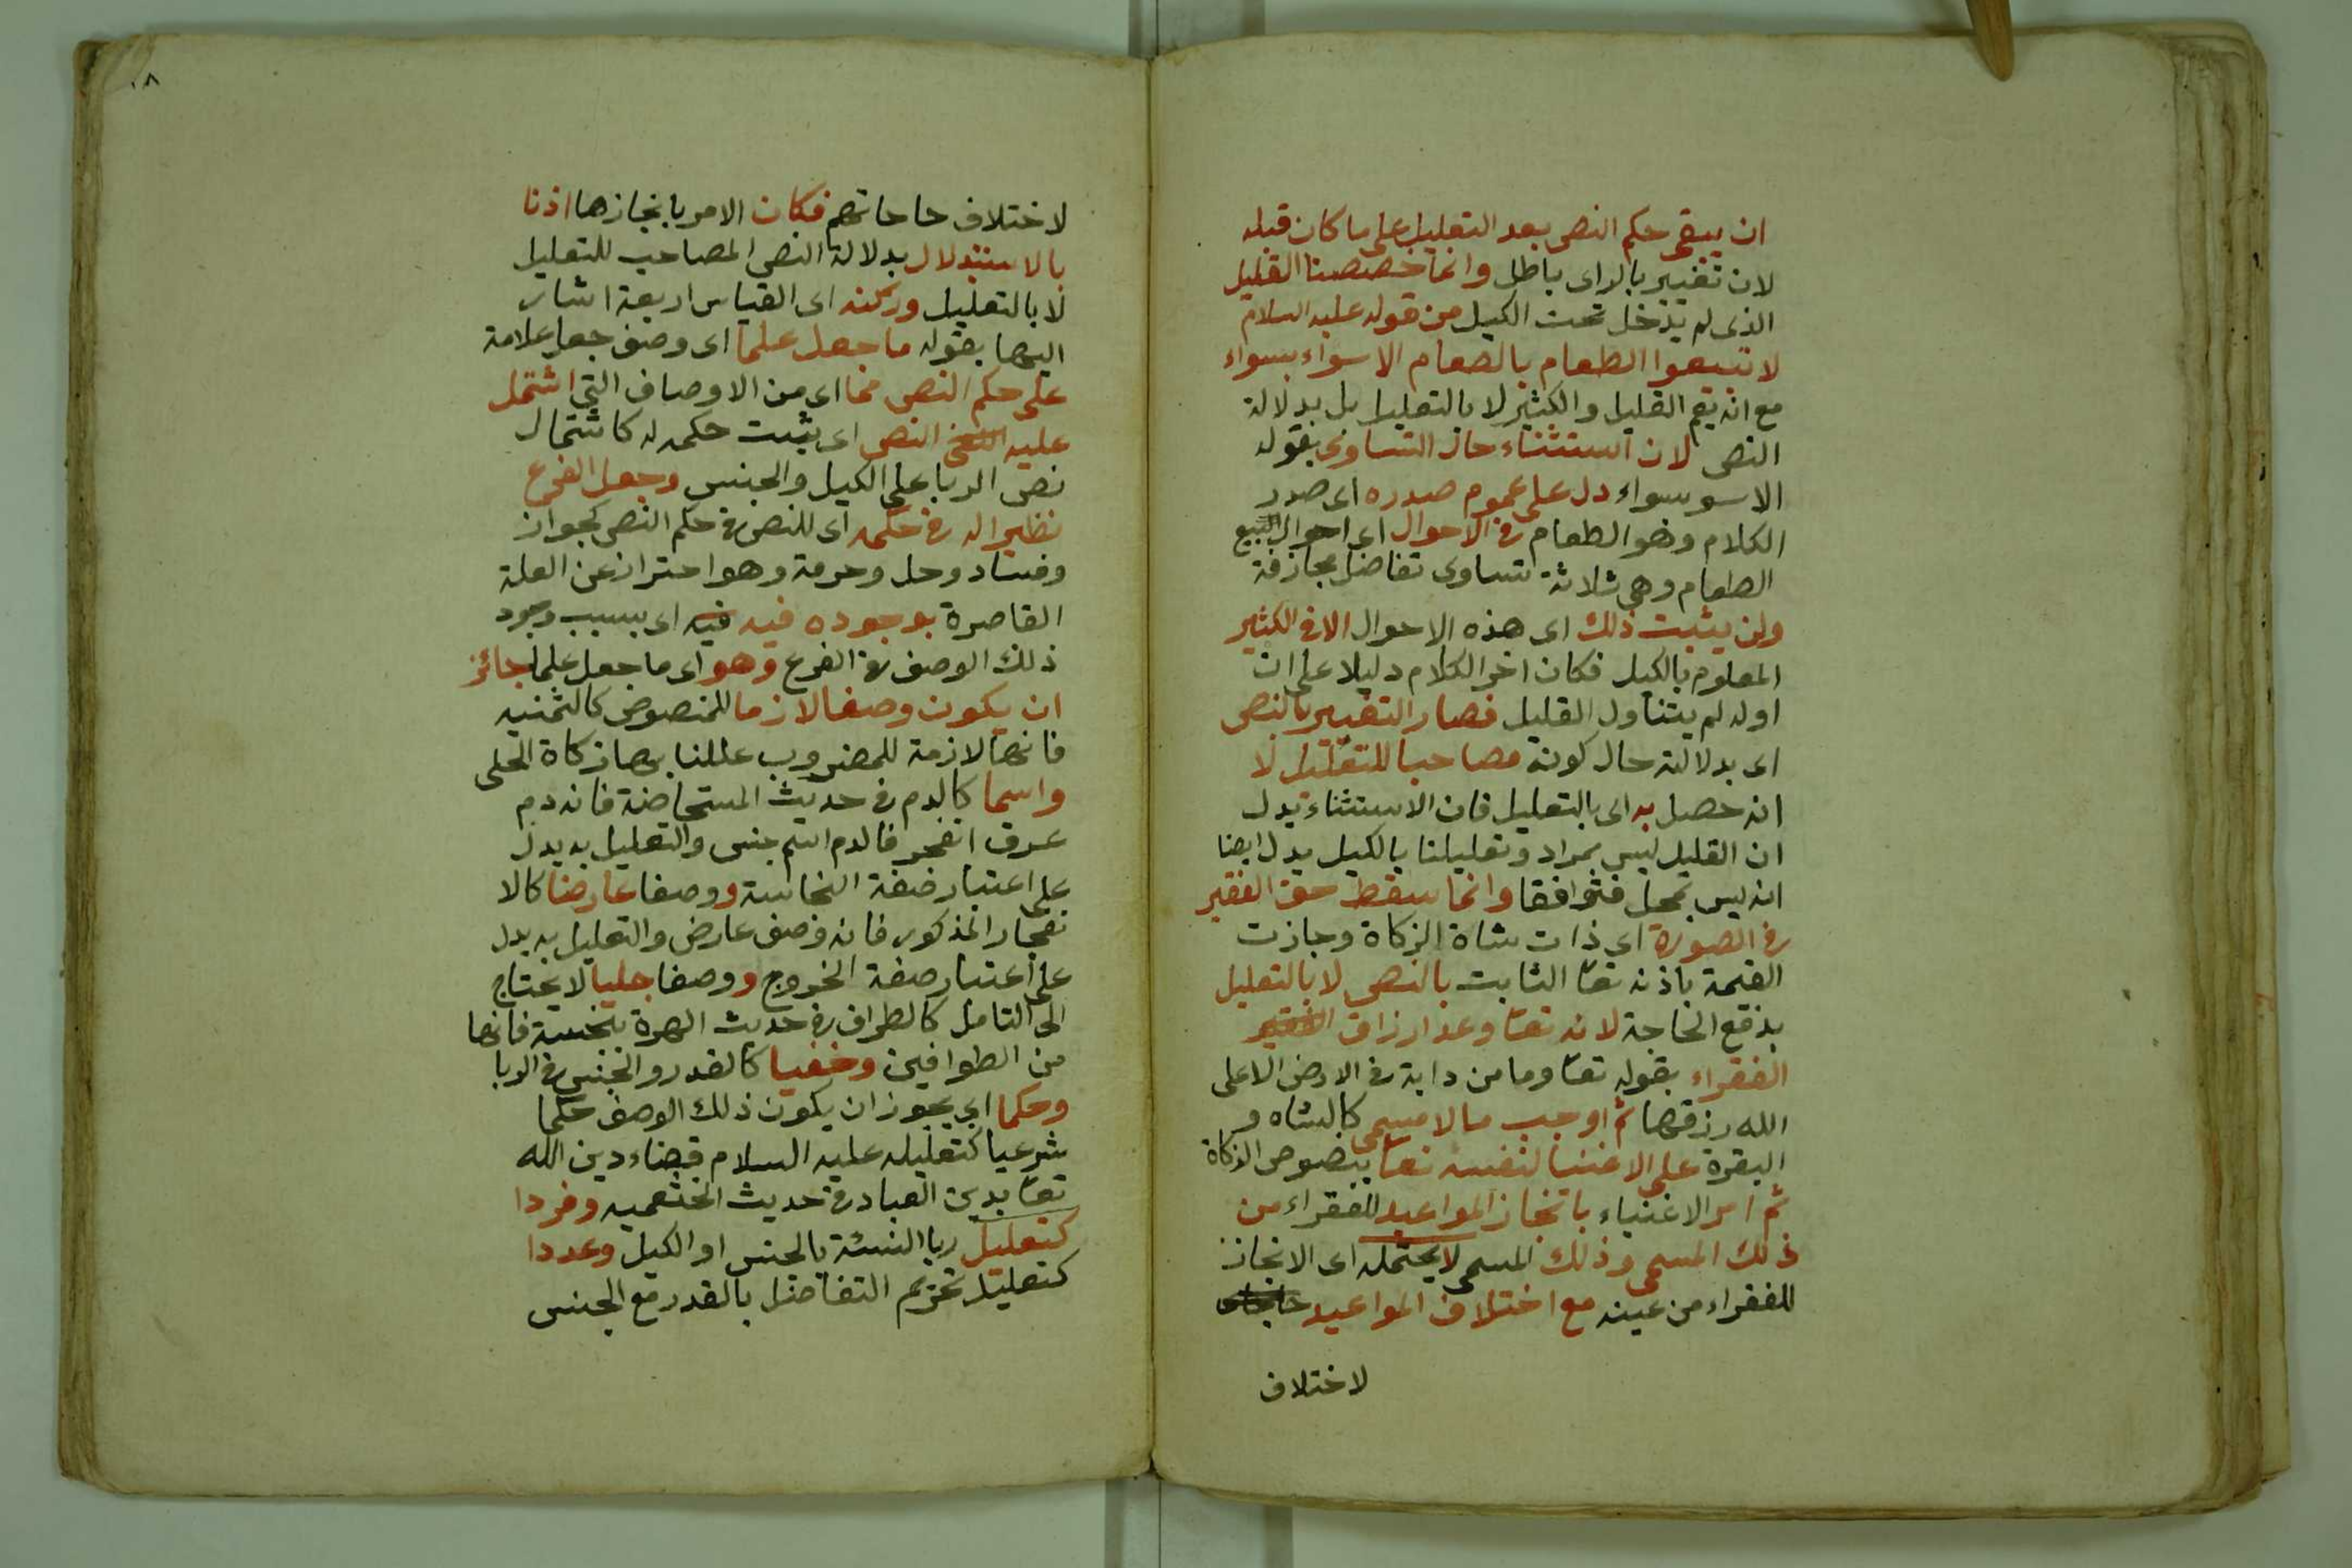 ان يبقى حكم النص بعد التعليل على ما كان قبله
لان تغيير بالراى باطل وانما خصصنا القليل
الذى لم يدخل تحت الكيل من قوله عليه السلام
لا تبيعوا الطعام بالطعام الا سواء بسواء
مع انه يعم القليل والكثير لا بالتعليل بل بدلالة
النص لان استثناء حال التساوى بقوله
الا سوسواء دل على عموم صدره اى صدر
الكلام وهو الطعام فى الاحوال اى احوال البيع
الطعام وهى ثلاثة تساوى تفاضل مجازفة
ولن يثبت ذلك اى هذه الاحوال الا فى الكثير
المعلوم بالكيل فكان اخر الكلام دليلا على ان
اوله لم يتناول القليل فصار التغيير بالنص
اى بدلالته حال كونه مصاحبا للتعليل لا
انه حصل به اى بالتعليل فان الاستثناء يدل
ان القليل ليس بمراد وتعليلنا بالكيل يدل ايضا
انه ليس بمحل فتوافقا وانما سقط حق الفقير
فى الصورة اى ذات شاة الزكاة وجازت
القيمة باذنه تعا الثابت بالنص لا بالتعليل
بدفع الحاجة لانه تعا وعد ارزاق
الفقراء بقوله تعا وما من دابة فى الارض الا على
الله رزقها ثم اوجب مالا مسمى كالشاه و
البقرة على الاغنيا لنفسه تعا بنصوص الزكاة
ثم امر الاغنياء بانجاز المواعيد للفقراء من
ذلك المسمى وذلك المسمى لا يحتمله اى الانجاز
للفقراء من عينه مع اختلاف المواعيد
لاختلاف
٨
لاختلاف حاجاتهم فكان الامر بانجازها اذنا
بالاستبدلال بدلالة النص المصاحب للتعليل
لا بالتعليل وركنه اى القياس اربعة اشار
اليها بقوله ما جعل علما اى وصف جعل علامة
على حكم النص مما اى من الاوصاف التى اشتمل
عليه النص اى يثبت حكمه له كاشتمال
نص الربا على الكيل والجنس وجعل الفرع
نظيرا له فى حكمه اى للنص فى حكم النص كجواز
وفساد وحل وحرمة وهو احتراز عن العلة
القاصرة بوجوده فيه فيه اى بسبب وجود
ذلك الوصف فى الفرع وهو اى ما جعل علما جائز
ان يكون وصفا لازما للمنصوص كالثمنيه
فانها لازمة للمضروب عللنا بها زكاة الحلى
واسما كالدم فى حديث المستحاضة فانه دم
عرق انفجر فالدم اسم جنس والتعليل به يدل
على اعتبار صفة النجاسة ووصفا عارضا كالا
نفجار المذكور فانه وصف عارض والتعليل به يدل
على اعتبار صفة الخروج ووصفا جليا لا يحتاج
الى التامل كالطواف فى حديث الهرة بنجسة فانها
من الطوافين وخفيا كالقدر والجنس فى الربا
وحكما اى يجوز ان يكون ذلك الوصف حكما
شرعيا كتعليله عليه السلام قضاء دين الله
تعا بدين العباد فى حديث الخثعميه وفردا
كتعليل ربا النسئة بالجنس او الكيل وعددا
كتعليل تحريم التفاضل بالقدر مع الجنس